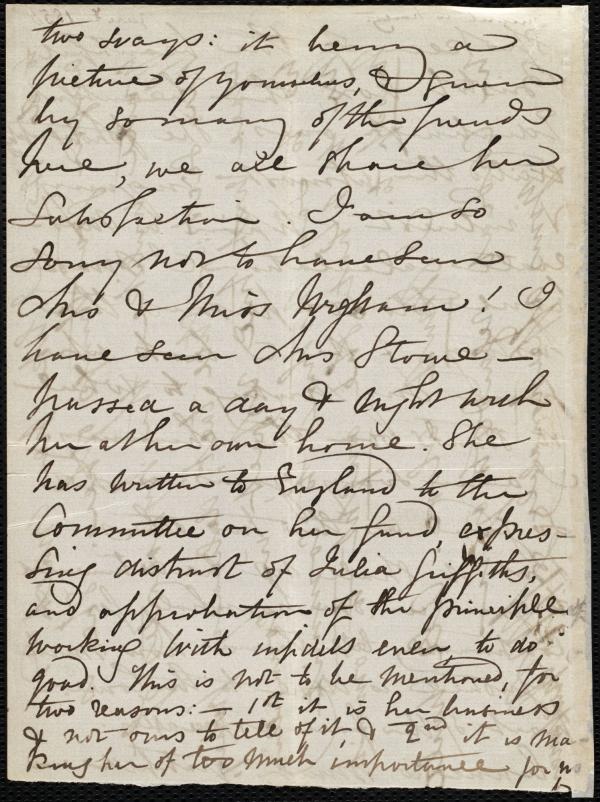 two ways: it being a
picture of yourselves, & given
by so many of the friends
here, we all share her
Satisfaction. I am so
sorry not to have seen
Mrs & Miss Wigham! I
have seen Mrs Stowe —
passed a day & night with
her at her own home. She
has written to England to the
Committee on her fund, expres-
sing distrust of Julia Griffiths,
and approbation of the principle
working with infidels even, to do
good. This is not to be mentioned, for
two reasons: — 1st it is her business
& not ours to tell of it, & 2nd it is ma-
king her of too much importance for